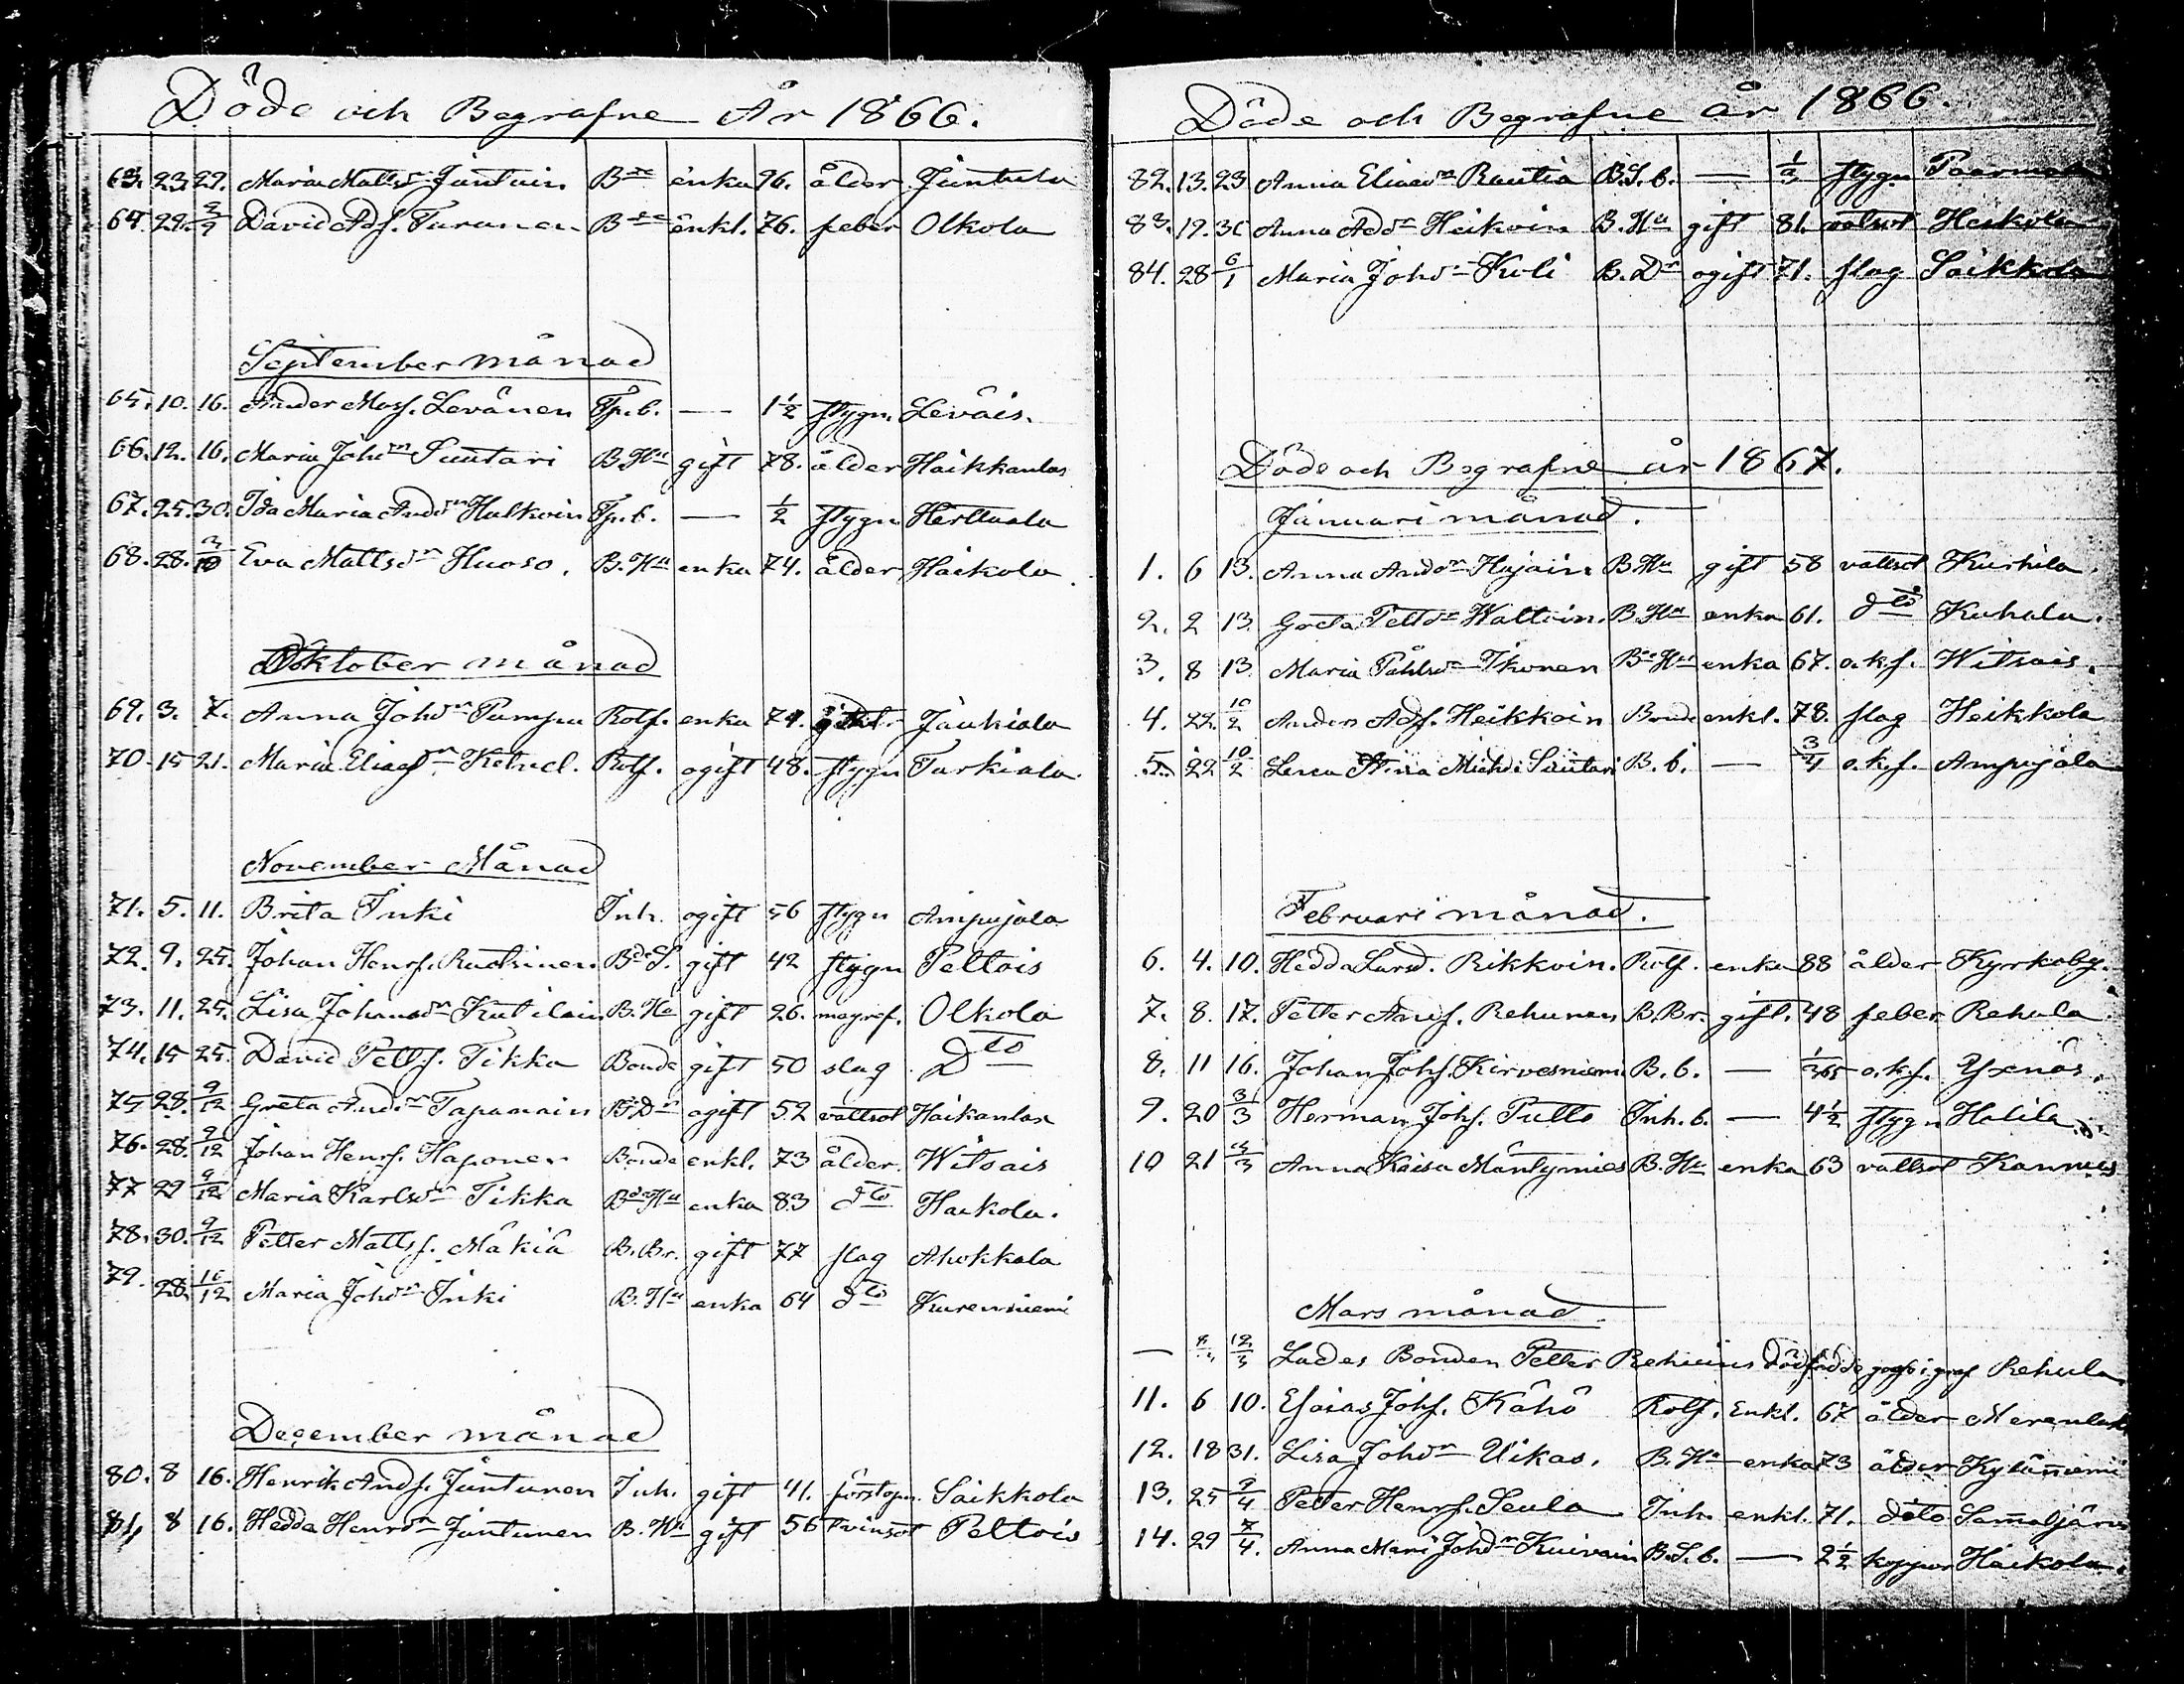 Döde och Begrafne År 1866.
63. 23. 29. Maria Mattsdr Jäntuin Bde enka 96. ålder Jäntula
64. 29. 2/9 David Adf. Turanen Bde enkl. 76. feber Olkola
September månad
65. 10. 16. Ander Mosf. Levänen Tp. b. — 1 1/2 stygn. Leväis.
66. 12. 16. Maria Johdr Suutari B. Hu gift 78. ålder Haikkanlax
67. 25. 30. Ida Maria Andrdr Hulkoin Tp. b. — 1/2 stygn Herttuala
68. 28. Eva Mattsdr Huoso. B. Hu enka 74. ålder Haikola.
Oktober månad
69. 3. 7. Anna Johdr Pumpu Rotf. enka 74. Jäukiala
70. 15 21. Maria Eliasdr Rotf. ogift 48. stygn Turkiala.
November Månad
71. 5. 11. Brita Inki Inh. ogift 56 stygn Ampujala
72. 9. 25. Johan Henrf. Ruotsinen. Bde S. gift 42 stygn Peltois
73. 11. 25. Lisa Johansdr Kutilain B. Hu gift 26. magref. Olkola
74. 15 25. David Pettf. Tikka Bonde gift 50 slag Dto
75 28. 9/12 Greta Andrdr Tapanain B. Dr ogift 52 vattsot Haikanlax
76. 28. 9/12 Johan Henrf. Haponen Bonde enkl. 73 ålder. Witsais
77 29 9/12 Maria Karlsdr Tikka Bde Hu enka 83 dto Haikola.
78. 30. 9/12 Petter Mattsf. Mäkiä B. Br. gift 77 slag Ahokkala
79. 28. 16/12 Maria Johdr Inki B. Hu enka 64 dto Kurenniemi
December månad
80. 8 16. Henrik Andf. Jäntunen Inh. gift 41. förstopn. Saikkola
81, 8 16. Hedda Henrdr Jäntunen B. Hu gift 56 tvinsot Peltois
Döde och Begrafne år 1866.
82. 13. 23 Anna Eliasdr Rautia B. S. b. — stygn
83. 19. 30 Anna Addr Heikoin B. Hu gift 81. vattsot Heikola
84. 28 6/1 Maria Johdr Kuli B. Dr ogift 71. slag Saikkola
Döde och Begrafne år 1867.
Januari månad.
1. 6 13. Anna Andrdr Hajain B. Hu gift 58 vattsot Kurhila.
2. 2 13. Greta Pettdr Waltoin. B. Hu enka 61. dto Kuhala.
3. 8 13. Maria Påhlsdr Ikonen Bde Hu enka 67. o.k.s. Witsais.
4. 22. 10/2 Anders Adf. Heikkoin Bonde enkl. 78. slag Heikkola
5. 22 10/2 Lena Stina Michd. Suutari B. b. — 3/4 o.k.s. Ampujala
Februari månad.
6. 4. 10. Hedda Larsd. Rikkoin. Rotf. enka 88 ålder Kyrkoby.
7. 8. 17. Petter Andf. Rehunen B. Br. gift. 48 feber Rehula
8. 11 16. Johan Johf. Kirvesniemi B. b. — 1/365 o.k.s. Yxnäs.
9. 20 3/3 Herman Johf. Pulto Inh. b. — 4 1/2 stygn Halila
10 21 3/3 Anna Kaisa Mäntynies B. Hu enka 63 vattsot Kannus
Mars månad.
— 12/3 Lades Bonden Petter dödfödde Rehula
11. 6 10. Esaias Johf. Kähö Rotf. Enkl. 67 ålder Merenlaht
12. 18 31. Lisa Johdr Uikas. B. Hu enka 73 ålder Kyläniemi
13. 25 9/4 Petter Henrf. Seula Inh. enkl. 71. dito Samaljärvi
14. 29 7/4. Anna Mari Johdr Kuivain B. S. b. — 2 1/2 koppor Haikola.